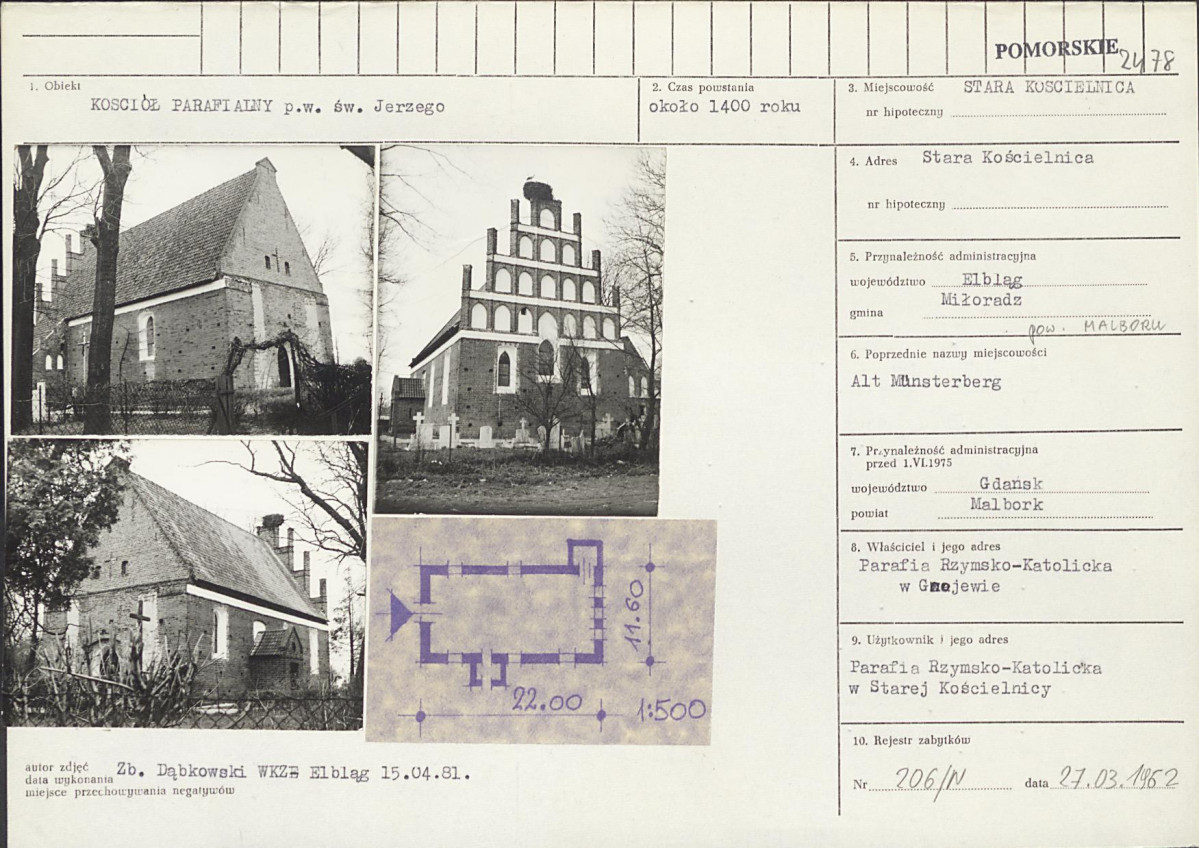 POMORSKIE
2478
1. Obiekt
KOSCIÓŁ PARAFIALNY p.w. św. Jerzego
2. Czas powstania
około 1400 roku
3. Miejscowość STARA KOSCIELNICA
nr hipoteczny
4. Adres Stara Kościelnica
nr hipoteczny
5. Przynależność administracyjna
województwo Elbląg
gmina Miłoradz
pow. MALBORK
6. Poprzednie nazwy miejscowości
Alt Münsterberg
7. Przynależność administracyjna
przed 1.VI.1975
województwo Gdańsk
powiat Malbork
8. Właściciel i jego adres
Parafia Rzymsko-Katolicka
w Gnojewie
9. Użytkownik i jego adres
Parafia Rzymsko-Katolicka
w Starej Kościelnicy
10. Rejestr zabytków
Nr 206/N data 27.03.1962
11.60
22.00
1:500
autor zdjęć Zb. Dąbkowski WKZ Elbląg 15.04.81.
data wykonania
miejsce przechowywania negatywów